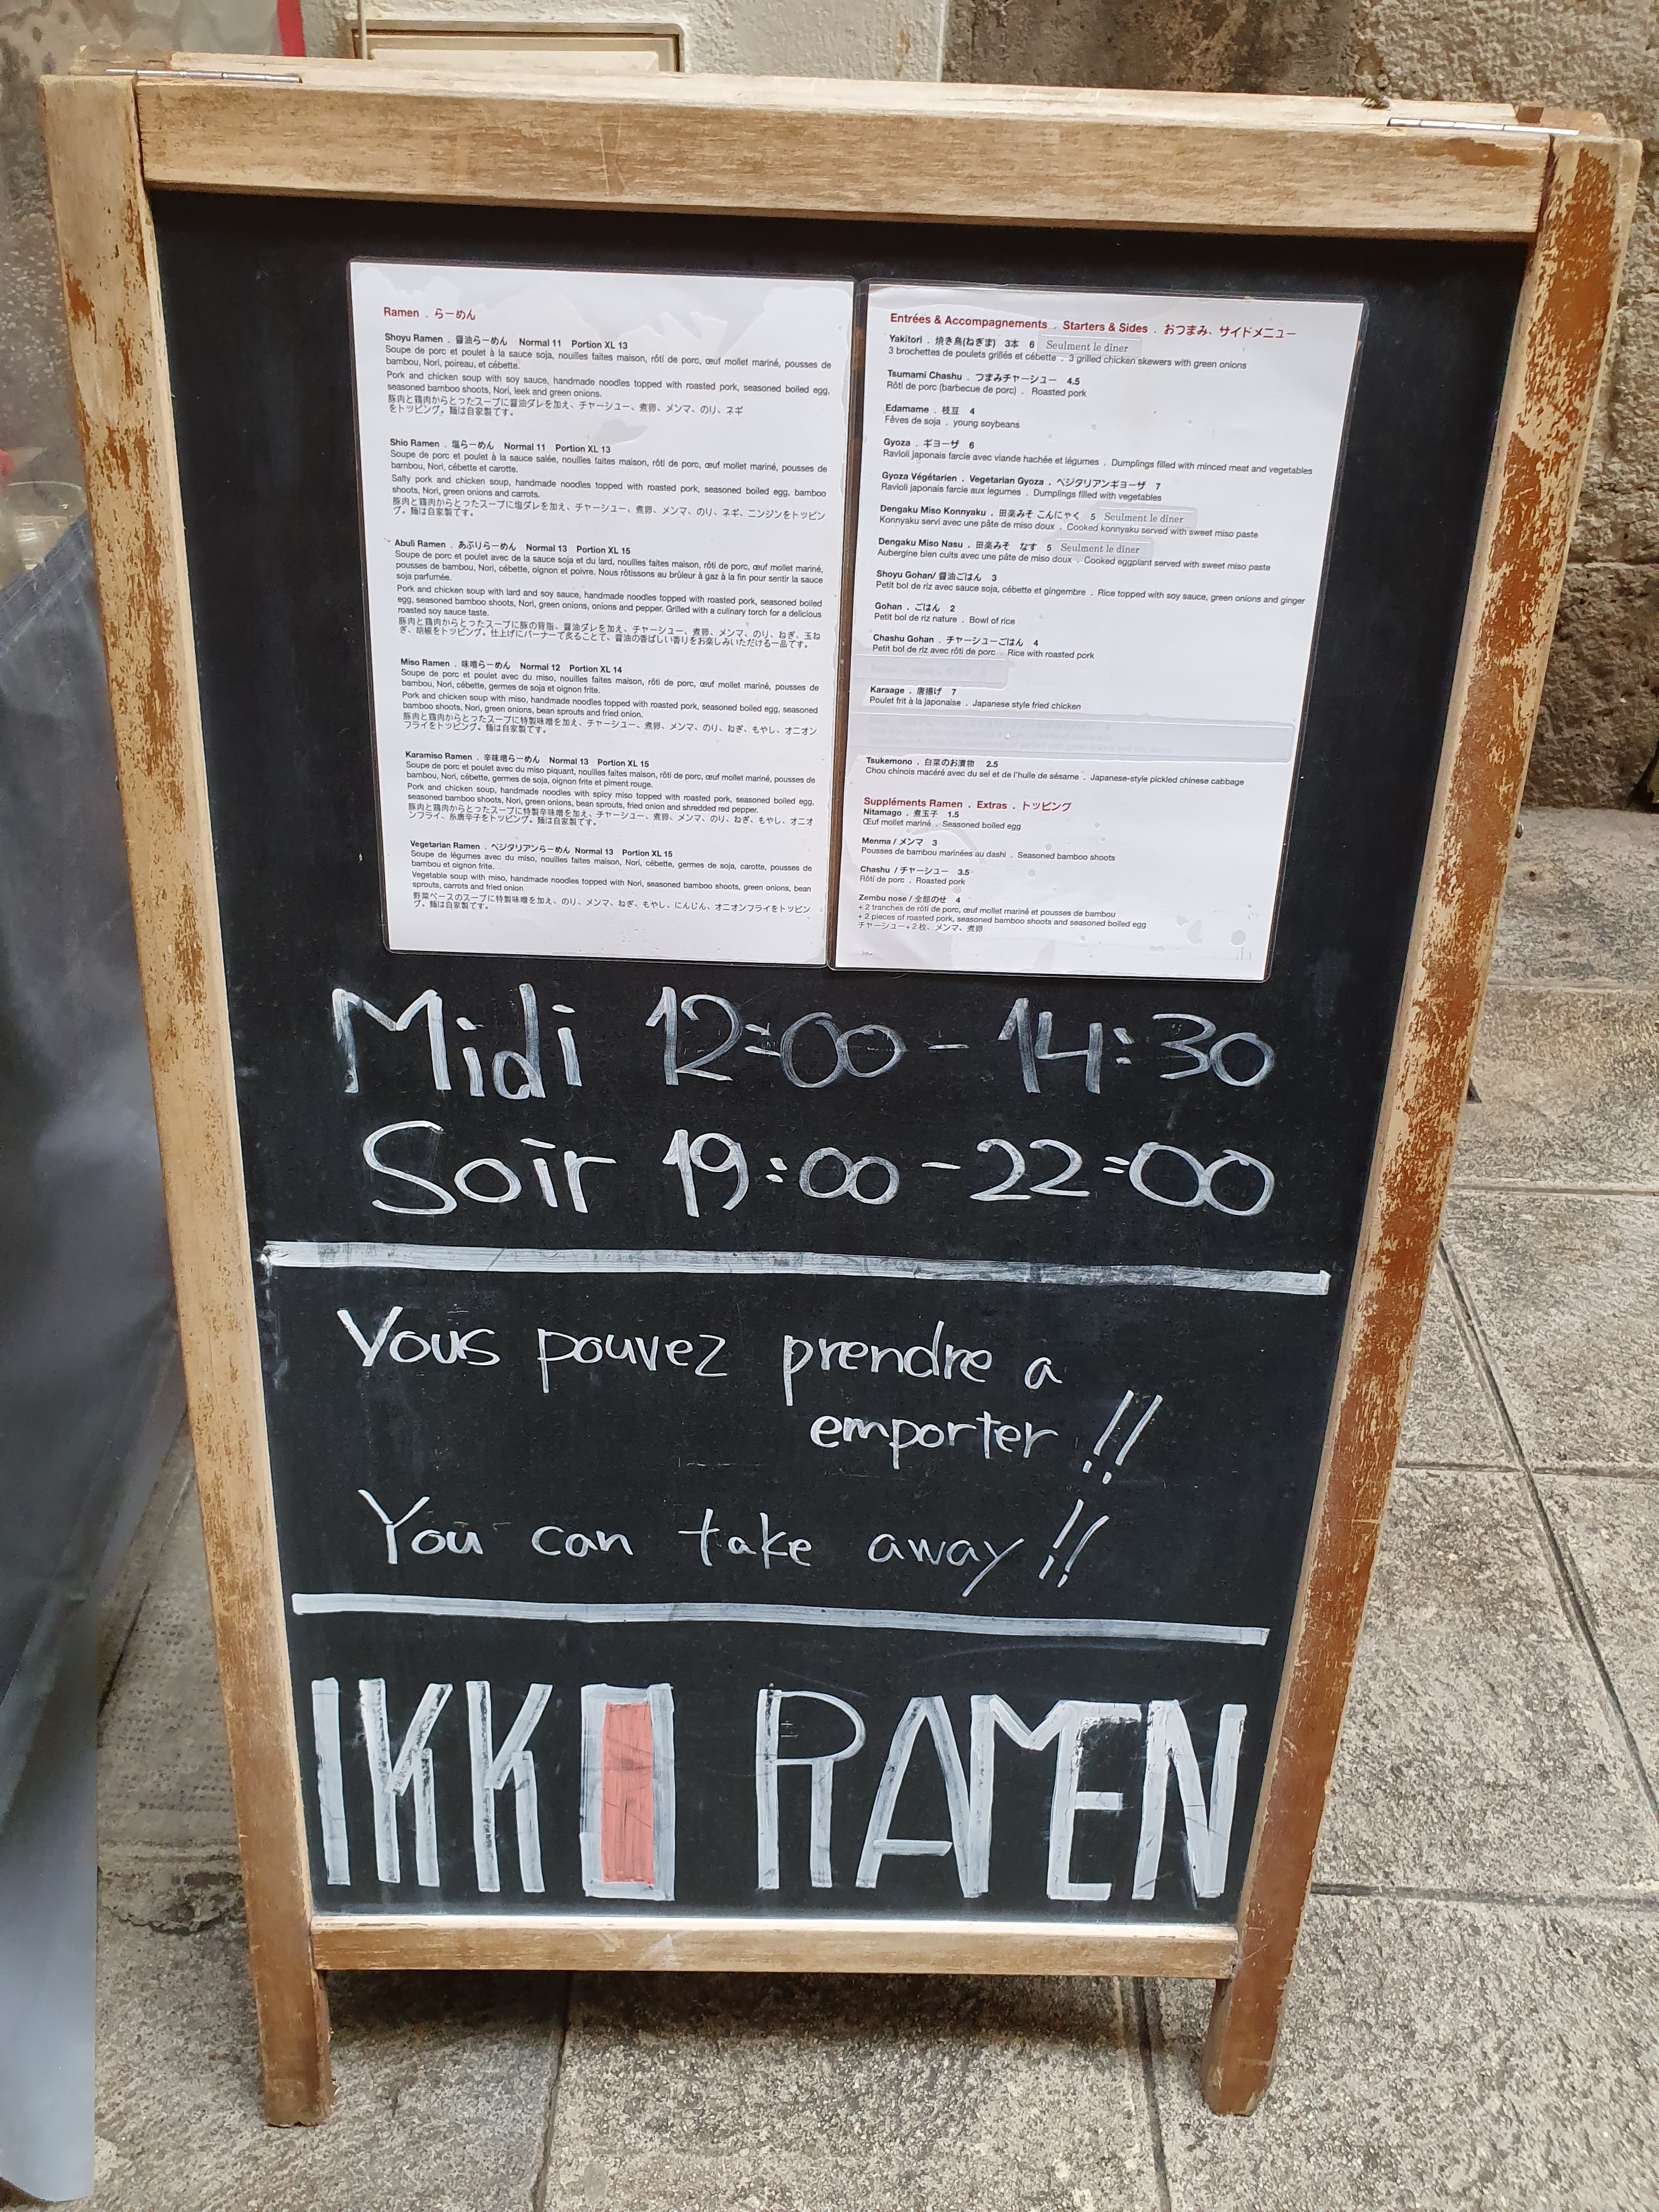 Ramen . らーめん
Shoyu Ramen . 醤油らーめん Normal 11 Portion XL 13
Soupe de porc et poulet à la sauce soja, nouilles faites maison, rôti de porc, œuf mollet mariné, pousses de
bambou, Nori, poireau, et cébette.
Pork and chicken soup with soy sauce, handmade noodles topped with roasted pork, seasoned boiled egg,
seasoned bamboo shoots, Nori, leek and green onions.
豚肉と鶏肉からとったスープに醤油ダレを加え、チャーシュー、煮卵、メンマ、のり、ネギ
をトッピング。麺は自家製です。
Shio Ramen . 塩らーめん Normal 11 Portion XL 13
Soupe de porc et poulet à la sauce salée, nouilles faites maison, rôti de porc, œuf mollet mariné, pousses de
bambou, Nori, cébette et carotte.
Salty pork and chicken soup, handmade noodles topped with roasted pork, seasoned boiled egg, bamboo
shoots, Nori, green onions and carrots.
豚肉と鶏肉からとったスープに塩ダレを加え、チャーシュー、煮卵、メンマ、のり、ネギ、ニンジンをトッピン
グ。麺は自家製です。
Abuli Ramen . あぶりらーめん Normal 13 Portion XL 15
Soupe de porc et poulet avec de la sauce soja et du lard, nouilles faites maison, rôti de porc, œuf mollet mariné,
pousses de bambou, Nori, cébette, oignon et poivre. Nous rôtissons au brûleur à gaz à la fin pour sentir la sauce
soja parfumée.
Pork and chicken soup with lard and soy sauce, handmade noodles topped with roasted pork, seasoned boiled
egg, seasoned bamboo shoots, Nori, green onions, onions and pepper. Grilled with a culinary torch for a delicious
roasted soy sauce taste.
豚肉と鶏肉からとったスープに豚の背脂、醤油ダレを加え、チャーシュー、煮卵、メンマ、のり、ねぎ、玉ね
ぎ、胡椒をトッピング。仕上げにバーナーで炙ることで、醤油の香ばしい香りをお楽しみいただける一品です。
Miso Ramen . 味噌らーめん Normal 12 Portion XL 14
Soupe de porc et poulet avec du miso, nouilles faites maison, rôti de porc, œuf mollet mariné, pousses de
bambou, Nori, cébette, germes de soja et oignon frite.
Pork and chicken soup with miso, handmade noodles topped with roasted pork, seasoned boiled egg, seasoned
bamboo shoots, Nori, green onions, bean sprouts and fried onion.
豚肉と鶏肉からとったスープに特製味噌を加え、チャーシュー、煮卵、メンマ、のり、ねぎ、もやし、オニオン
フライをトッピング。麺は自家製です。
Karamiso Ramen . 辛味噌らーめん Normal 13 Portion XL 15
Soupe de porc et poulet avec du miso piquant, nouilles faites maison, rôti de porc, œuf mollet mariné, pousses de
bambou, Nori, cébette, germes de soja, oignon frite et piment rouge.
Pork and chicken soup, handmade noodles with spicy miso topped with roasted pork, seasoned boiled egg,
seasoned bamboo shoots, Nori, green onions, bean sprouts, fried onion and shredded red pepper.
豚肉と鶏肉からとったスープに特製辛味噌を加え、チャーシュー、煮卵、メンマ、のり、ねぎ、もやし、オニオ
ンフライ、糸唐辛子をトッピング。麺は自家製です。
Vegetarian Ramen . ベジタリアンらーめん Normal 13 Portion XL 15
Soupe de légumes avec du miso, nouilles faites maison, Nori, cébette, germes de soja, carotte, pousses de
bambou et oignon frite.
Vegetable soup with miso, handmade noodles topped with Nori, seasoned bamboo shoots, green onions, bean
sprouts, carrots and fried onion
野菜ベースのスープに特製味噌を加え、のり、メンマ、ねぎ、もやし、にんじん、オニオンフライをトッピン
グ。麺は自家製です。
Entrées & Accompagnements . Starters & Sides . おつまみ、サイドメニュー
Yakitori . 焼き鳥(ねぎま) 3本 6 Seulment le dîner
3 brochettes de poulets grillés et cébette . 3 grilled chicken skewers with green onions
Tsumami Chashu . つまみチャーシュー 4.5
Rôti de porc (barbecue de porc) . Roasted pork
Edamame . 枝豆 4
Fèves de soja . young soybeans
Gyoza . ギョーザ 6
Ravioli japonais farcie avec viande hachée et légumes . Dumplings filled with minced meat and vegetables
Gyoza Végétarien . Vegetarian Gyoza . ベジタリアンギョーザ 7
Ravioli japonais farcie aux legumes . Dumplings filled with vegetables
Dengaku Miso Konnyaku . 田楽みそ こんにゃく 5 Seulment le dîner
Konnyaku servi avec une pâte de miso doux . Cooked konnyaku served with sweet miso paste
Dengaku Miso Nasu . 田楽みそ なす 5 Seulment le dîner
Aubergine bien cuits avec une pâte de miso doux . Cooked eggplant served with sweet miso paste
Shoyu Gohan/ 醤油ごはん 3
Petit bol de riz avec sauce soja, cébette et gingembre . Rice topped with soy sauce, green onions and ginger
Gohan . ごはん 2
Petit bol de riz nature . Bowl of rice
Chashu Gohan . チャーシューごはん 4
Petit bol de riz avec rôti de porc . Rice with roasted pork
Karaage . 唐揚げ 7
Poulet frit à la japonaise . Japanese style fried chicken
Tsukemono . 白菜のお漬物 2.5
Chou chinois macéré avec du sel et de l'huile de sésame . Japanese-style pickled chinese cabbage
Suppléments Ramen . Extras . トッピング
Nitamago . 煮玉子 1.5
Œuf mollet mariné . Seasoned boiled egg
Menma / メンマ 3
Pousses de bambou marinées au dashi . Seasoned bamboo shoots
Chashu / チャーシュー 3.5
Rôti de porc . Roasted pork
Zembu nose / 全部のせ 4
+ 2 tranches de rôti de porc, œuf mollet mariné et pousses de bambou
+ 2 pieces of roasted pork, seasoned bamboo shoots and seasoned boiled egg
チャーシュー+2枚、メンマ、煮卵
Midi 12:00 - 14:30
Soir 19:00 - 22:00
Vous pouvez prendre a
emporter !!
You can take away !!
IKKI RAMEN